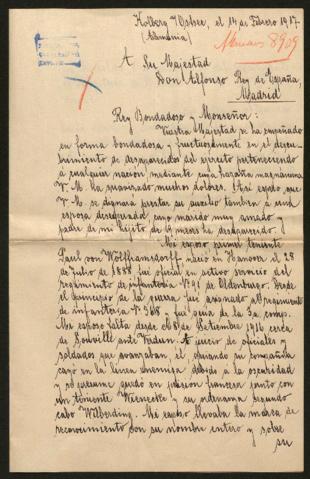 Kolberg /Ostsee, el 14 de Febrero 1917.
(Alemania)
A Su Majestad
Don Alfonso Rey de España,
Madrid
Rey Bondadoso y Monseñor:
Vuestra Majestad se ha empeñado
en forma bondadosa y fructuosamente en el descu-
brimiento de desaparecidos del ejercito perteneciendo
a cualquier nacion mediante cuya hazaña magnanima
V. M. ha suavizado muchos dolores. Asi espero que
V. M. se dignara prestar su auxilio tambien a una
esposa desesperada, cuyo marido muy amado y
padre de mi hijito de 4 meses ha desaparecido.
Mi esposo primer teniente
Paul von Wolfframsdorff nacio en Hanover el 28
de Julio de 1888 fui oficial en activo servicio del
regimiento de infanteria Nº 91 de Oldenburgo. Desde
el principio de la guerra fue asignado al regimiento
de infanteria Nº 368 y fui gefe de la 3a comp.
Mi esposo falta desde el 8 de Setiembre 1916 cerca
de Souville ante Verdun. A juicio de oficiales y
soldados que avanzaban, el guiando su compañia
cayó en la linea enemiga debido a la oscuridad
y se presume quedó en prision francesa junto con
un teniente Wernecke y su ordenanza segundo
cabo Wilberding. Mi esposo llevaba la marca de
reconocimiento con su nombre entero y sobre
su